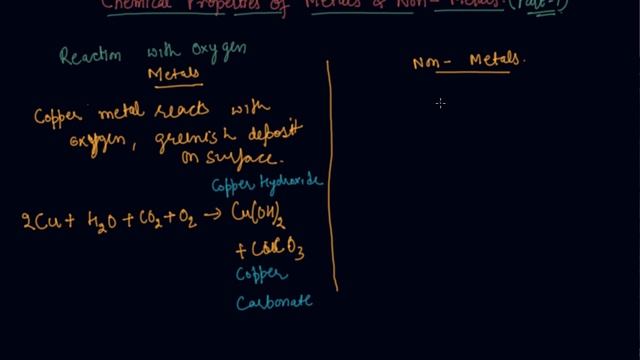 Chemical Properties of Metals & Non-Metals. (Part-1)
Reaction with Oxygen
Metals
Non- Metals.
Copper metal reacts with
oxygen, greenish deposit
on surface.
Copper Hydroxide
2Cu + H2O + CO2 + O2 → Cu(OH)2
+ CuCO3
Copper
Carbonate